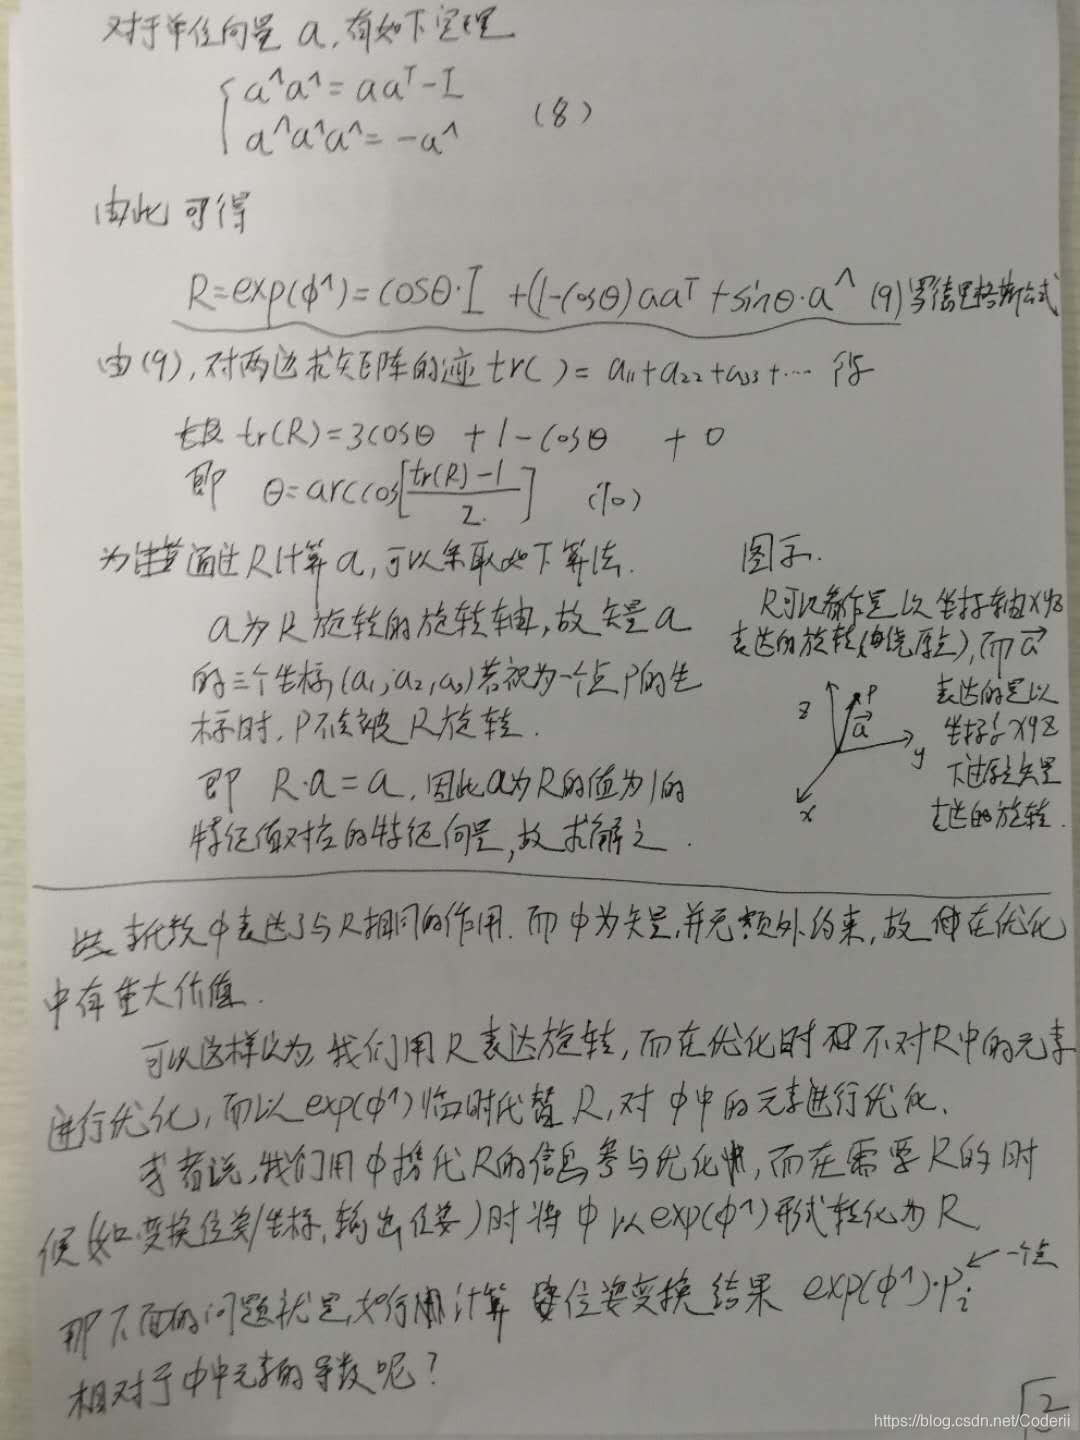 对于单位向量 a,有如下定理
a^a^ = aaᵀ-I
a^a^a^ = -a^ (8)
由此可得
R=exp(φ^)=cosθ·I +(1-cosθ)aaᵀ+sinθ·a^ (9) 罗德里格斯公式
由(9),对两边求矩阵的迹tr( )= a₁₁+a₂₂+a₃₃+…
tr(R)=3cosθ +1-cosθ +0
即 θ=arccos[(tr(R)-1)/2] (10)
为 通过R计算a,可以采取如下算法.
a为R旋转的旋转轴,故矢量a
的三个坐标,(a₁,a₂,a₃)若视为一个点P的坐
标时,P不会被R旋转.
即 R·a=a,因此a为R的值为1的
特征值对应的特征向量,故求解之.
图示.
R可以 是以坐标轴xyz
表达的旋转(由绕原点),而a⃗
表达的是以
坐标系xyz
下过原点矢量
表达的旋转.
z
P
a⃗
y
x
李代数φ表达了与R相同的作用.而φ为矢量,并无额外约束,故 在优化
中有重大价值.
可以这样认为,我们用R表达旋转,而在优化时 不对R中的元素
进行优化,而以exp(φ^)临时代替R,对φ中的元素进行优化.
或者说,我们用φ携代R的信息参与优化,而在需要R的时
候(如变换位姿/坐标,输出位姿)时将φ以exp(φ^)形式转化为R.
那下面的问题就是,如何 计算 位姿变换结果 exp(φ^)·Pᵢ ←一个点
相对于φ中元素的导数呢?
2
https://blog.csdn.net/Coderii